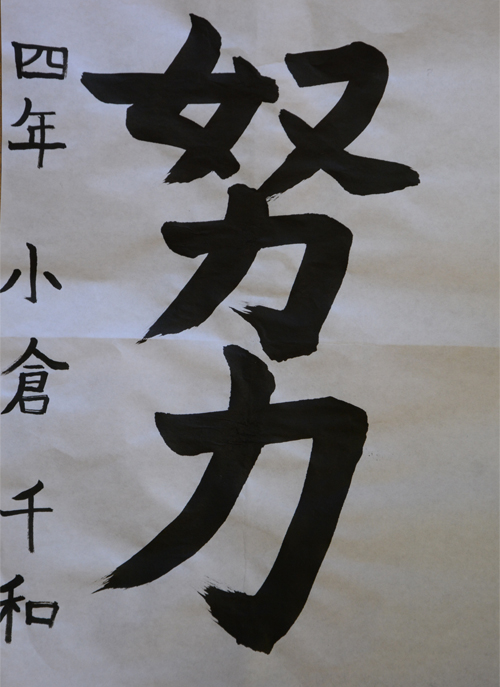 努力
四年 小倉 千和